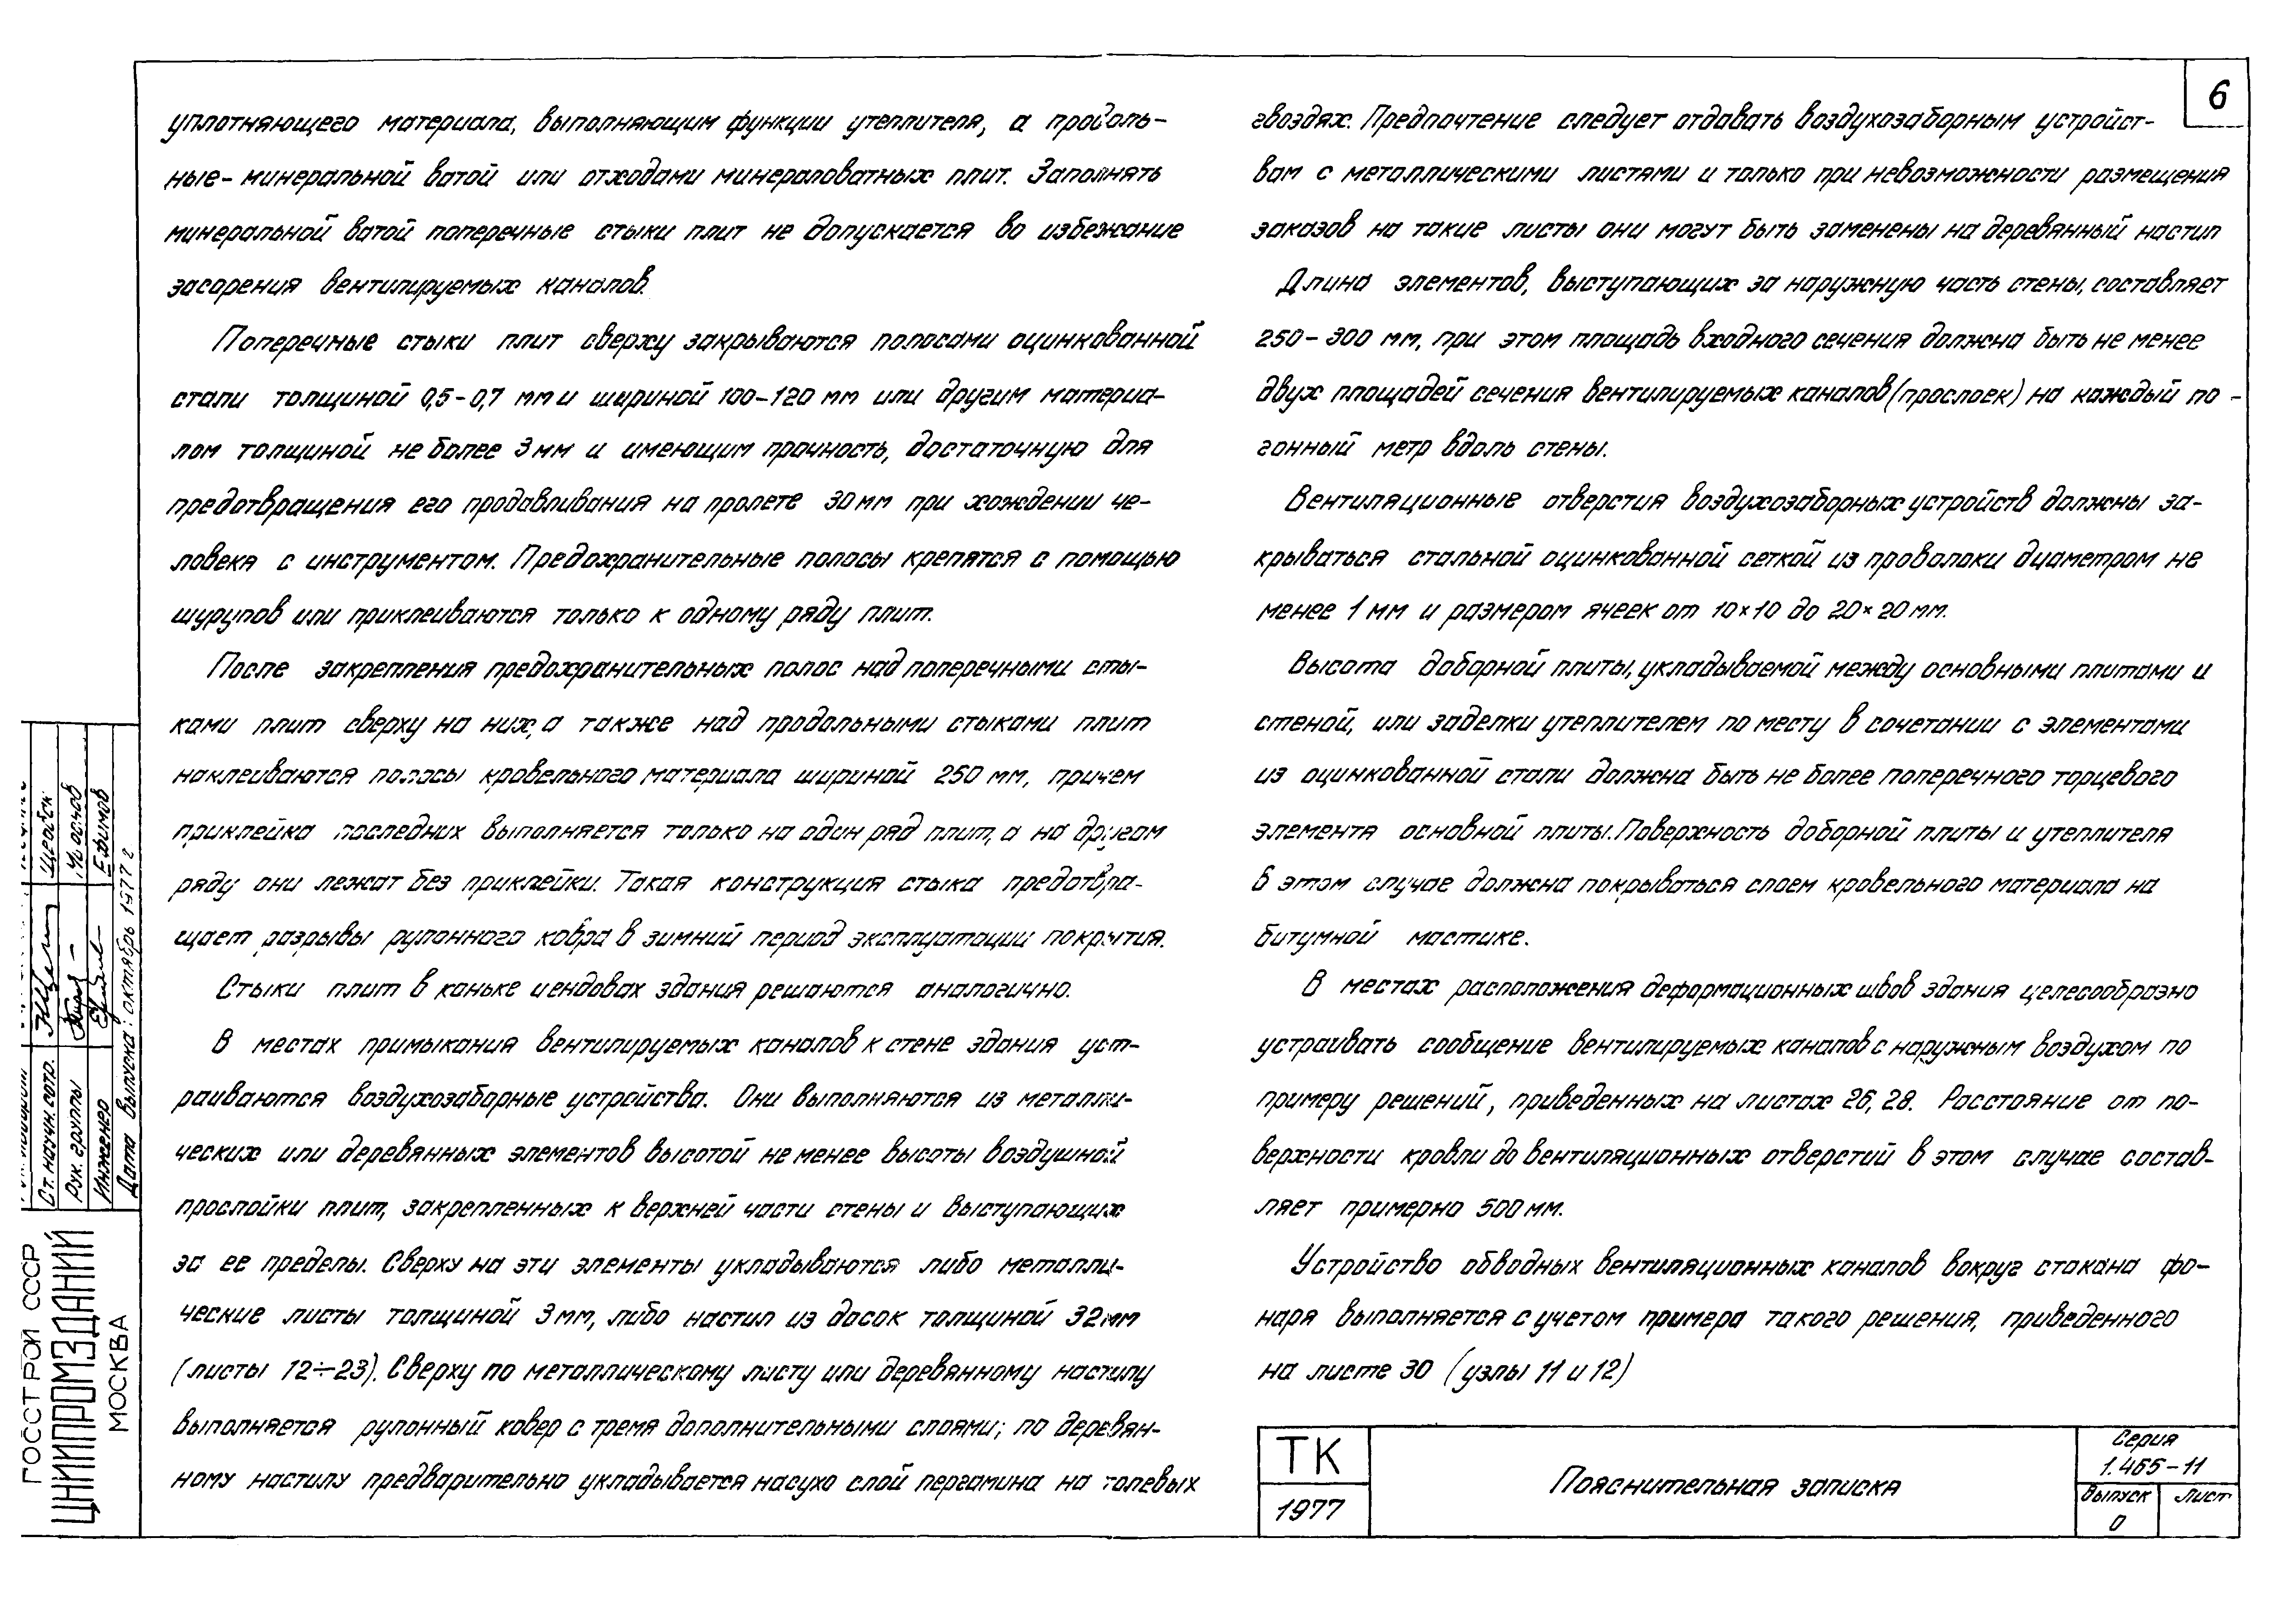 6
уплотняющего материала, выполняющим функции утеплителя, а продоль-
ные - минеральной ватой или отходами минераловатных плит. Заполнять
минеральной ватой поперечные стыки плит не допускается во избежание
засорения вентилируемых каналов.
Поперечные стыки плит сверху закрываются полосами оцинкованной
стали толщиной 0,5-0,7 мм и шириной 100-120 мм или другим материа-
лом толщиной не более 3 мм и имеющим прочность, достаточную для
предотвращения его продавливания на пролете 30 мм при хождении че-
ловека с инструментом. Предохранительные полосы крепятся с помощью
шурупов или приклеиваются только к одному ряду плит.
После закрепления предохранительных полос над поперечными сты-
ками плит сверху на них, а также над продольными стыками плит
наклеиваются полосы кровельного материала шириной 250 мм, причем
приклейка последних выполняется только на один ряд плит, а на другом
ряду они лежат без приклейки. Такая конструкция стыка предотвра-
щает разрывы рулонного ковра в зимний период эксплуатации покрытия.
Стыки плит в коньке и ендовах здания решаются аналогично.
В местах примыкания вентилируемых каналов к стене здания уст-
раиваются воздухозаборные устройства. Они выполняются из металли-
ческих или деревянных элементов высотой не менее высоты воздушной
прослойки плит, закрепленных к верхней части стены и выступающих
за ее пределы. Сверху на эти элементы укладываются либо металли-
ческие листы толщиной 3 мм, либо настил из досок толщиной 32 мм
(листы 12÷23). Сверху по металлическому листу или деревянному настилу
выполняется рулонный ковер с тремя дополнительными слоями; по деревян-
ному настилу предварительно укладывается насухо слой пергамина на толевых
гвоздях. Предпочтение следует отдавать воздухозаборным устройст-
вам с металлическими листами и только при невозможности размещения
заказов на такие листы они могут быть заменены на деревянный настил
Длина элементов, выступающих за наружную часть стены, составляет
250-300 мм, при этом площадь входного сечения должна быть не менее
двух площадей сечения вентилируемых каналов (прослоек) на каждый по-
гонный метр вдоль стены.
Вентиляционные отверстия воздухозаборных устройств должны за-
крываться стальной оцинкованной сеткой из проволоки диаметром не
менее 1 мм и размером ячеек от 10×10 до 20×20 мм.
Высота доборной плиты, укладываемой между основными плитами и
стеной, или заделки утеплителем по месту в сочетании с элементами
из оцинкованной стали должна быть не более поперечного торцевого
элемента основной плиты. Поверхность доборной плиты и утеплителя
в этом случае должна покрываться слоем кровельного материала на
битумной мастике.
В местах расположения деформационных швов здания целесообразно
устраивать сообщение вентилируемых каналов с наружным воздухом по
примеру решений, приведенных на листах 26, 28. Расстояние от по-
верхности кровли до вентиляционных отверстий в этом случае состав-
ляет примерно 500 мм.
Устройство обводных вентиляционных каналов вокруг стакана фо-
наря выполняется с учетом примера такого решения, приведенного
на листе 30 (узлы 11 и 12)
ТК
1977
Пояснительная записка
Серия
1.465-11
Выпуск
0
Лист
ГОССТРОЙ СССР
ЦНИИПРОМЗДАНИЙ
МОСКВА
Ст. научн. сотр.
Рук. группы
Инженер Ефимов
Дата выпуска: октябрь 1977 г.